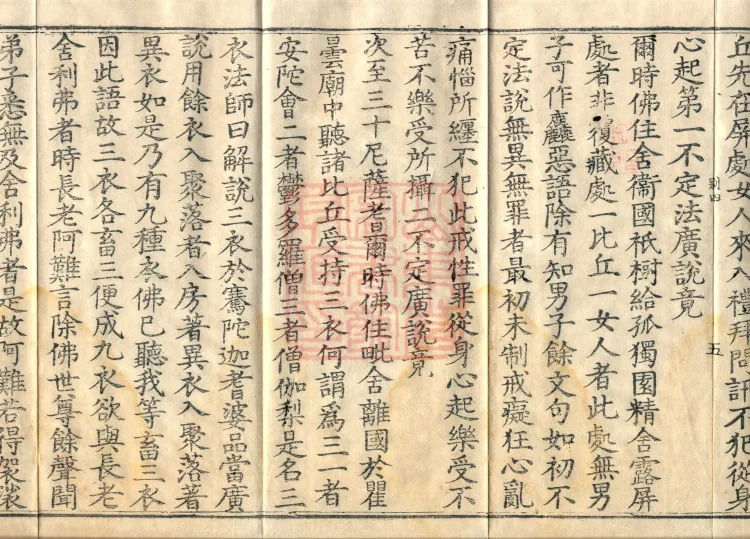 丘先在屏處女人來入禮拜問訊不犯從身
心起第一不定法廣說竟
爾時佛住舍衞國祇樹給孤獨園精舍露屏
處者非覆藏處一比丘一女人者此處無男
子可作麤惡語除有知男子餘文句如初不
定法說無異無罪者最初未制戒癡狂心亂
痛惱所纏不犯此戒性罪從身心起樂受不
苦不樂受所攝二不定廣說竟
次至三十尼薩耆爾時佛住毗舍離國於瞿
曇廟中聽諸比丘受持三衣何謂爲三一者
安陀會二者鬱多羅僧三者僧伽梨是名三
衣法師曰解說三衣於騫陀迦耆婆品當廣
說用餘衣入聚落者入房著異衣入聚落著
異衣如是乃有九種衣佛已聽我等畜三衣
因此語故三衣各畜三便成九衣欲與長老
舍利佛者時長老阿難言除佛世尊餘聲聞
弟子悉無及舍利佛者是故阿難若得袈裟
五